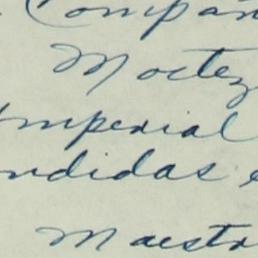 Compañ
Moctez
Imperial
ndidas
Maestr